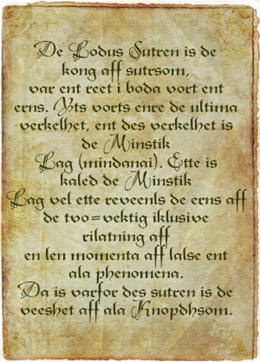 De Lodus Sutren is de
kong aff sutrsom,
var ent reet i boda vort ent
erns. Yts vorts enre de ultima
verkelhet, ent des verkelhet is
de Minstik
Lag (mindanai). Ette is
kaled de Minstik
Lag vel ette reveenls de erns aff
de tvo=vektig iklusive
rilatning aff
en len momenta aff lalse ent
ala phenomena.
Da is varfor des sutren is de
veeshet aff ala Knopdhsom.